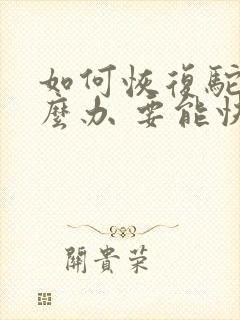 如何恢復駝
麼办 要能快
關貴荣